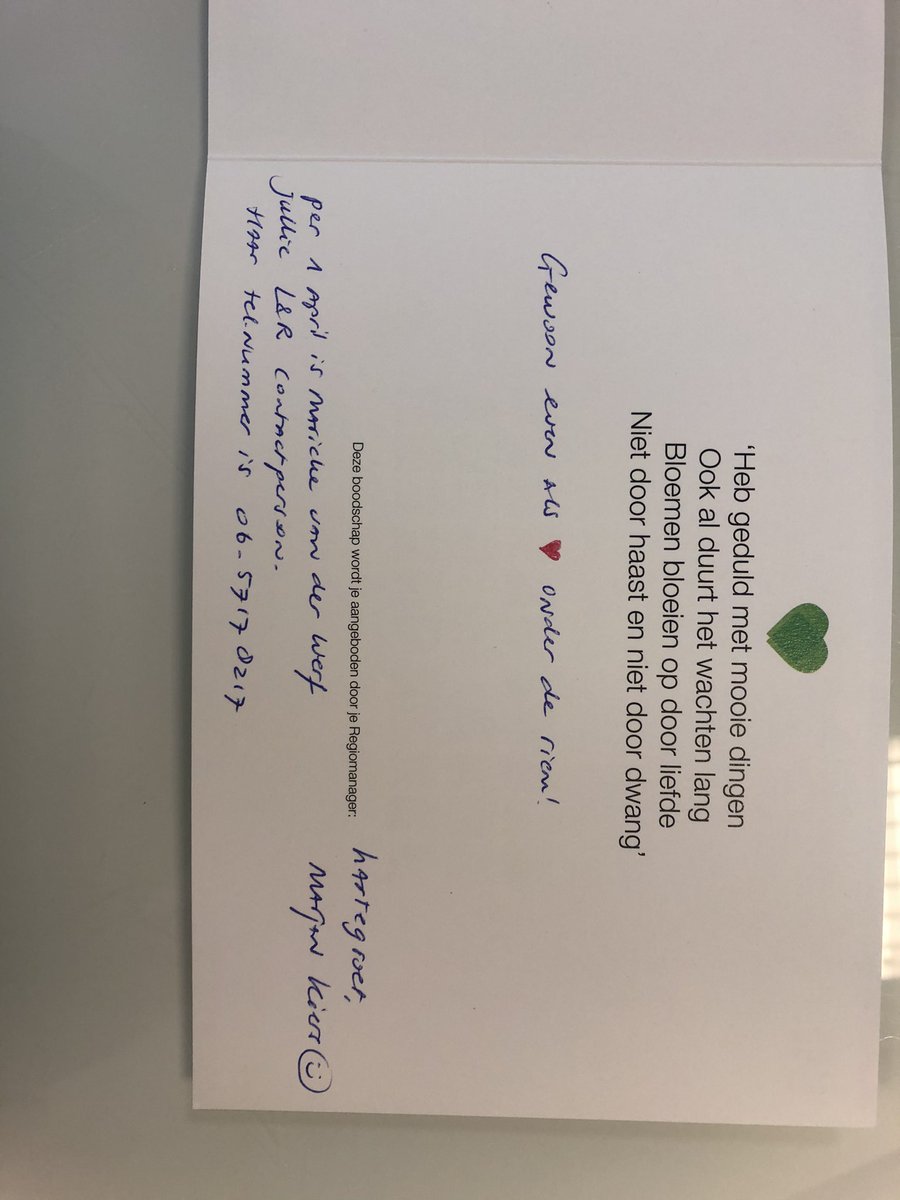 ‘Heb geduld met mooie dingen
Ook al duurt het wachten lang
Bloemen bloeien op door liefde
Niet door haast en niet door dwang’
Gewoon even als ♥ onder de riem!
Deze boodschap wordt je aangeboden door je Regiomanager:
hartegroet,
Marjan Kiers ☺
per 1 april is Marieke van der Werf
jullie L&R contactpersoon.
Haar tel.nummer is 06-57170217